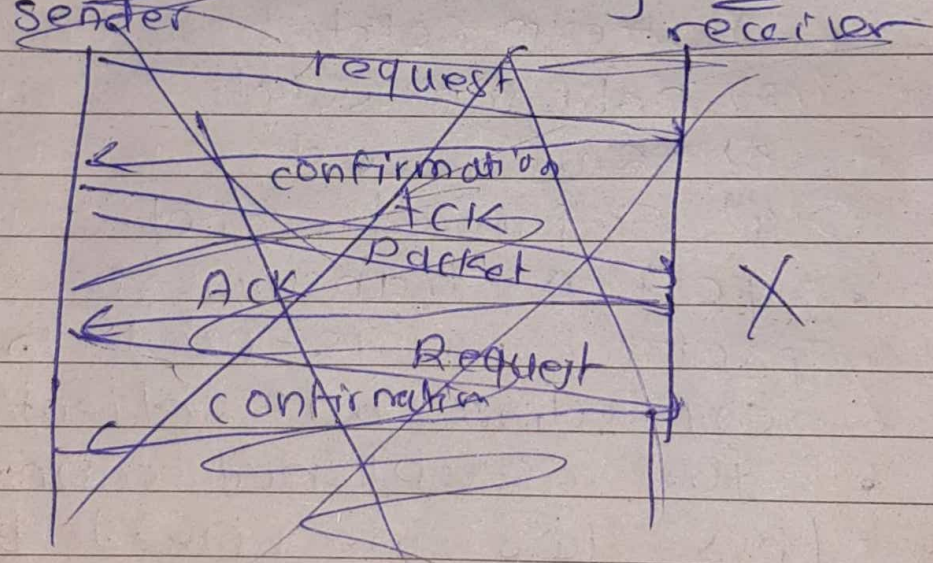 sender receiver
request
confirmation
ACK
Packet
Ack
Request
confirmation
X